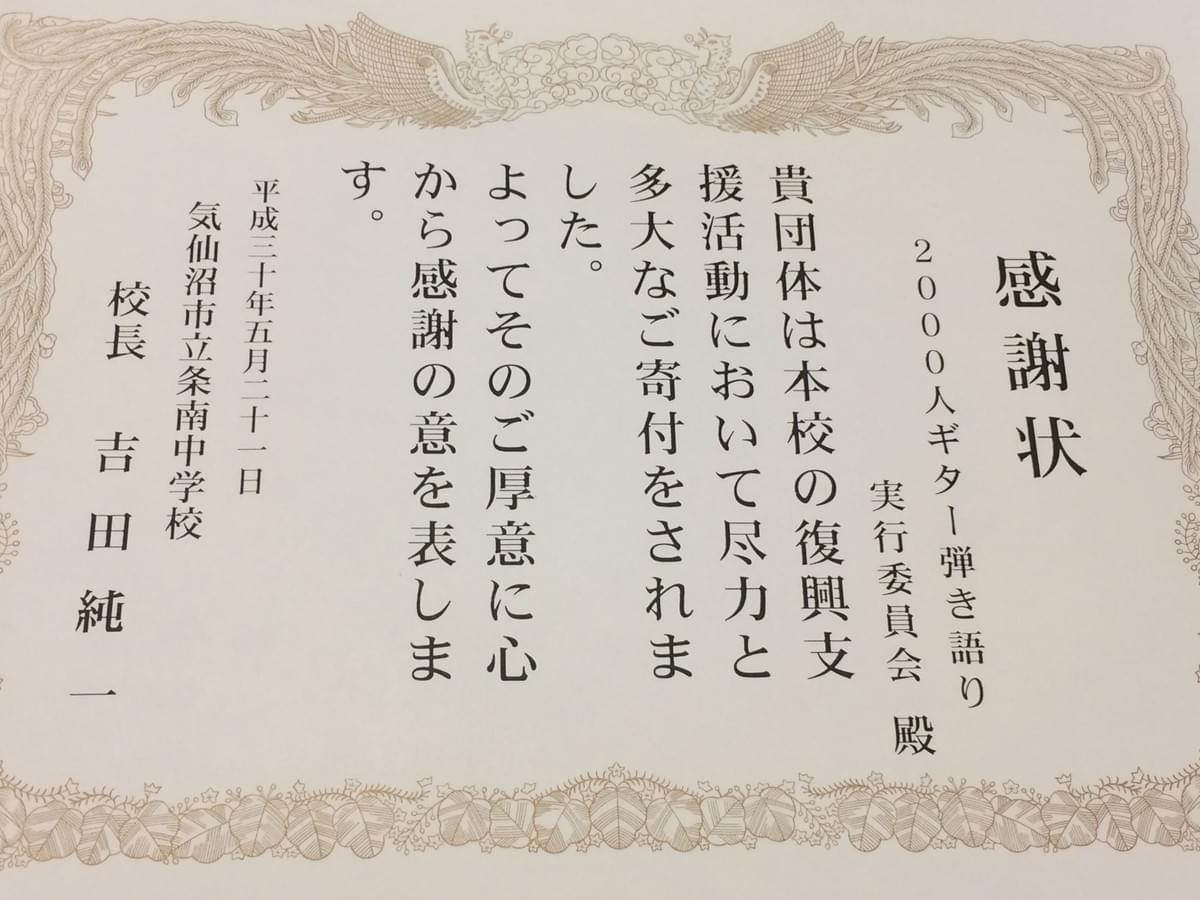 感謝状
2000人ギター弾き語り
実行委員会 殿
貴団体は本校の復興支
援活動において尽力と
多大なご寄付をされま
した。
よってそのご厚意に心
から感謝の意を表しま
す。
平成三十年五月二十一日
気仙沼市立条南中学校
校長 吉田純一